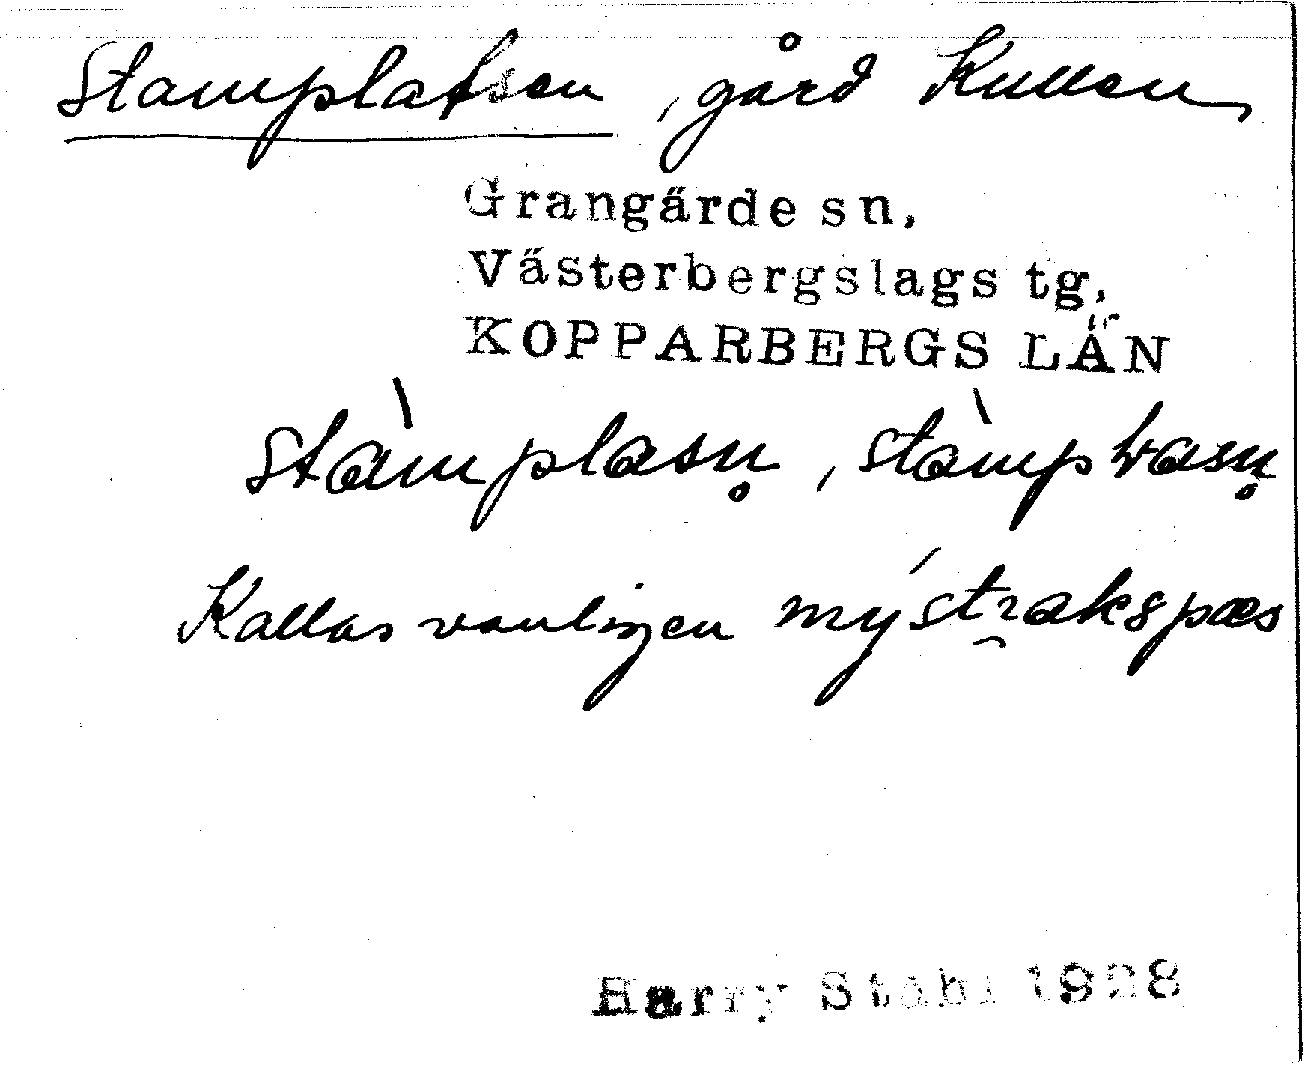 Stamplatsen, gård Kullen
Grangärde sn,
Västerbergslags tg,
KOPPARBERGS LÄN
stàmplasn̥, stàmptrasn̥
Kallas vanligen mýstr̯akspæs
Harry Ståhl 1928